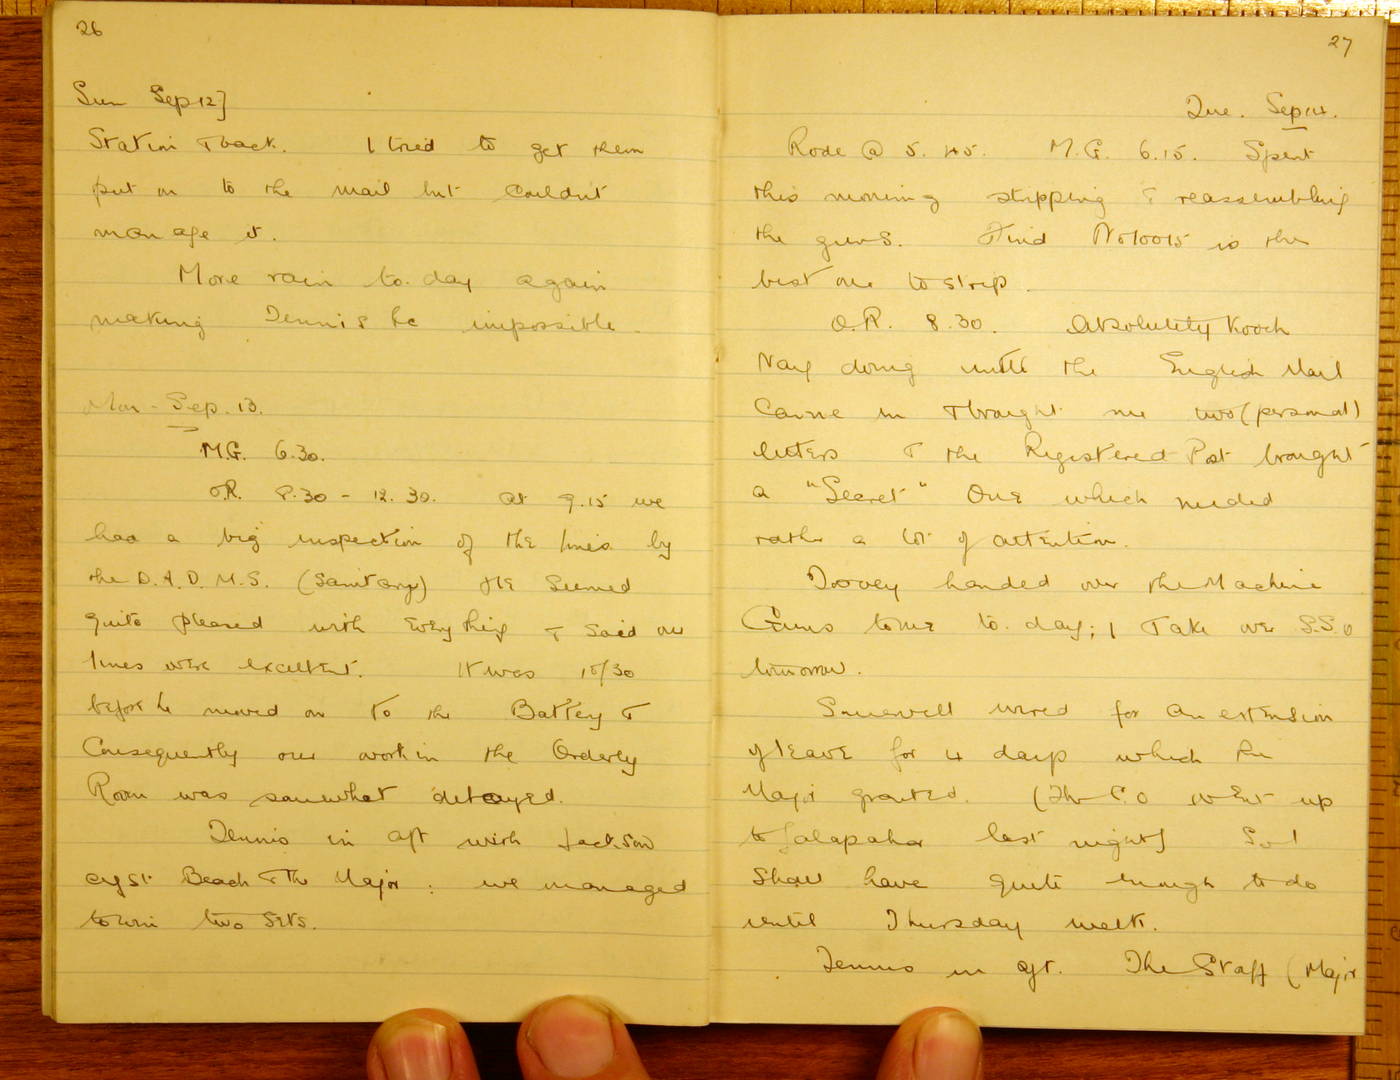 26
Sun Sep 12]
Station & back. I tried to get them
put on to the mail but couldnt
manage it.
More rain to-day again
making Tennis &c impossible.
Mon - Sep. 13.
M.G. 6.30.
O.R. 8.30 - 12.30. At 9.15 we
had a big inspection of the lines by
the D.A.D.M.S. (Sanitary) He seemed
quite pleased with everything & said our
lines were excellent. It was 10/30
before he moved on to the Battery &
Consequently our work in the Orderly
Room was somewhat delayed.
Tennis in aft with Jackson
agst Beach & the Major: we managed
to win two sets.
27
Tue. Sep 14.
Rode @ 5.45. M.G. 6.15. Spent
this morning stripping & reassembling
the guns. Find No 10015 is the
best one to strip.
O.R. 8.30. Absolutely Kooch
Nay doing until the English Mail
Came in & brought me two (personal)
letters & the Registered Post brought
a "Secret" One which needed
rather a lot of attention.
Toovey handed over the Machine
Guns to me to-day; I Take over S.S.O
tomorrow.
wired for an extension
of leave for 4 days which the
Major granted. (The C.O went up
to Jalapahar last night) So I
shall have quite enough to do
until Thursday week.
Tennis in aft. The Staff (Major